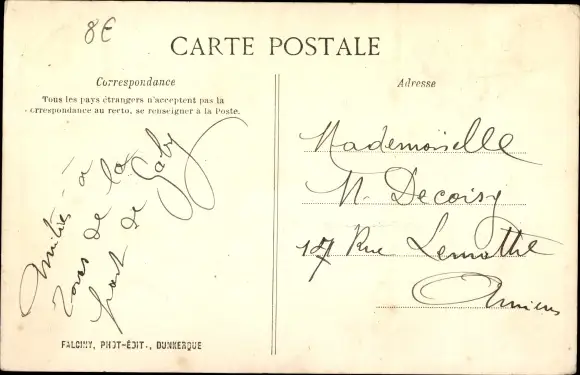 8€
CARTE POSTALE
Correspondance
Tous les pays étrangers n'acceptent pas la
correspondance au recto, se renseigner à la Poste.
Amitiés à
tous de la
part de Gaby
FALCINY, PHOT-ÉDIT., DUNKERQUE
Adresse
Mademoiselle
N. Decoisy
17 Rue Lemathe
Amiens